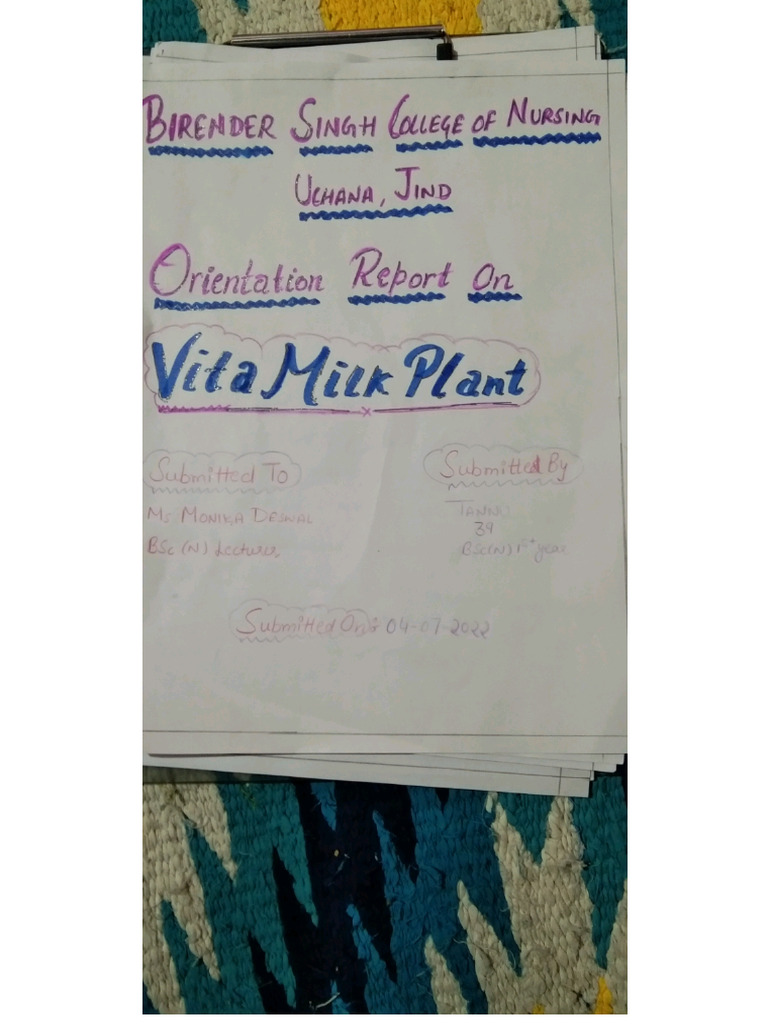 BIRENDER SINGH COLLEGE OF NURSING
UCHANA, JIND
Orientation Report On
Vita Milk Plant
Submitted To
Submitted By
Ms MONIKA DESWAL
TANNU
39
BSc (N) Lecturer
BSc(N) 1st year
Submitted On: 04-07-2022